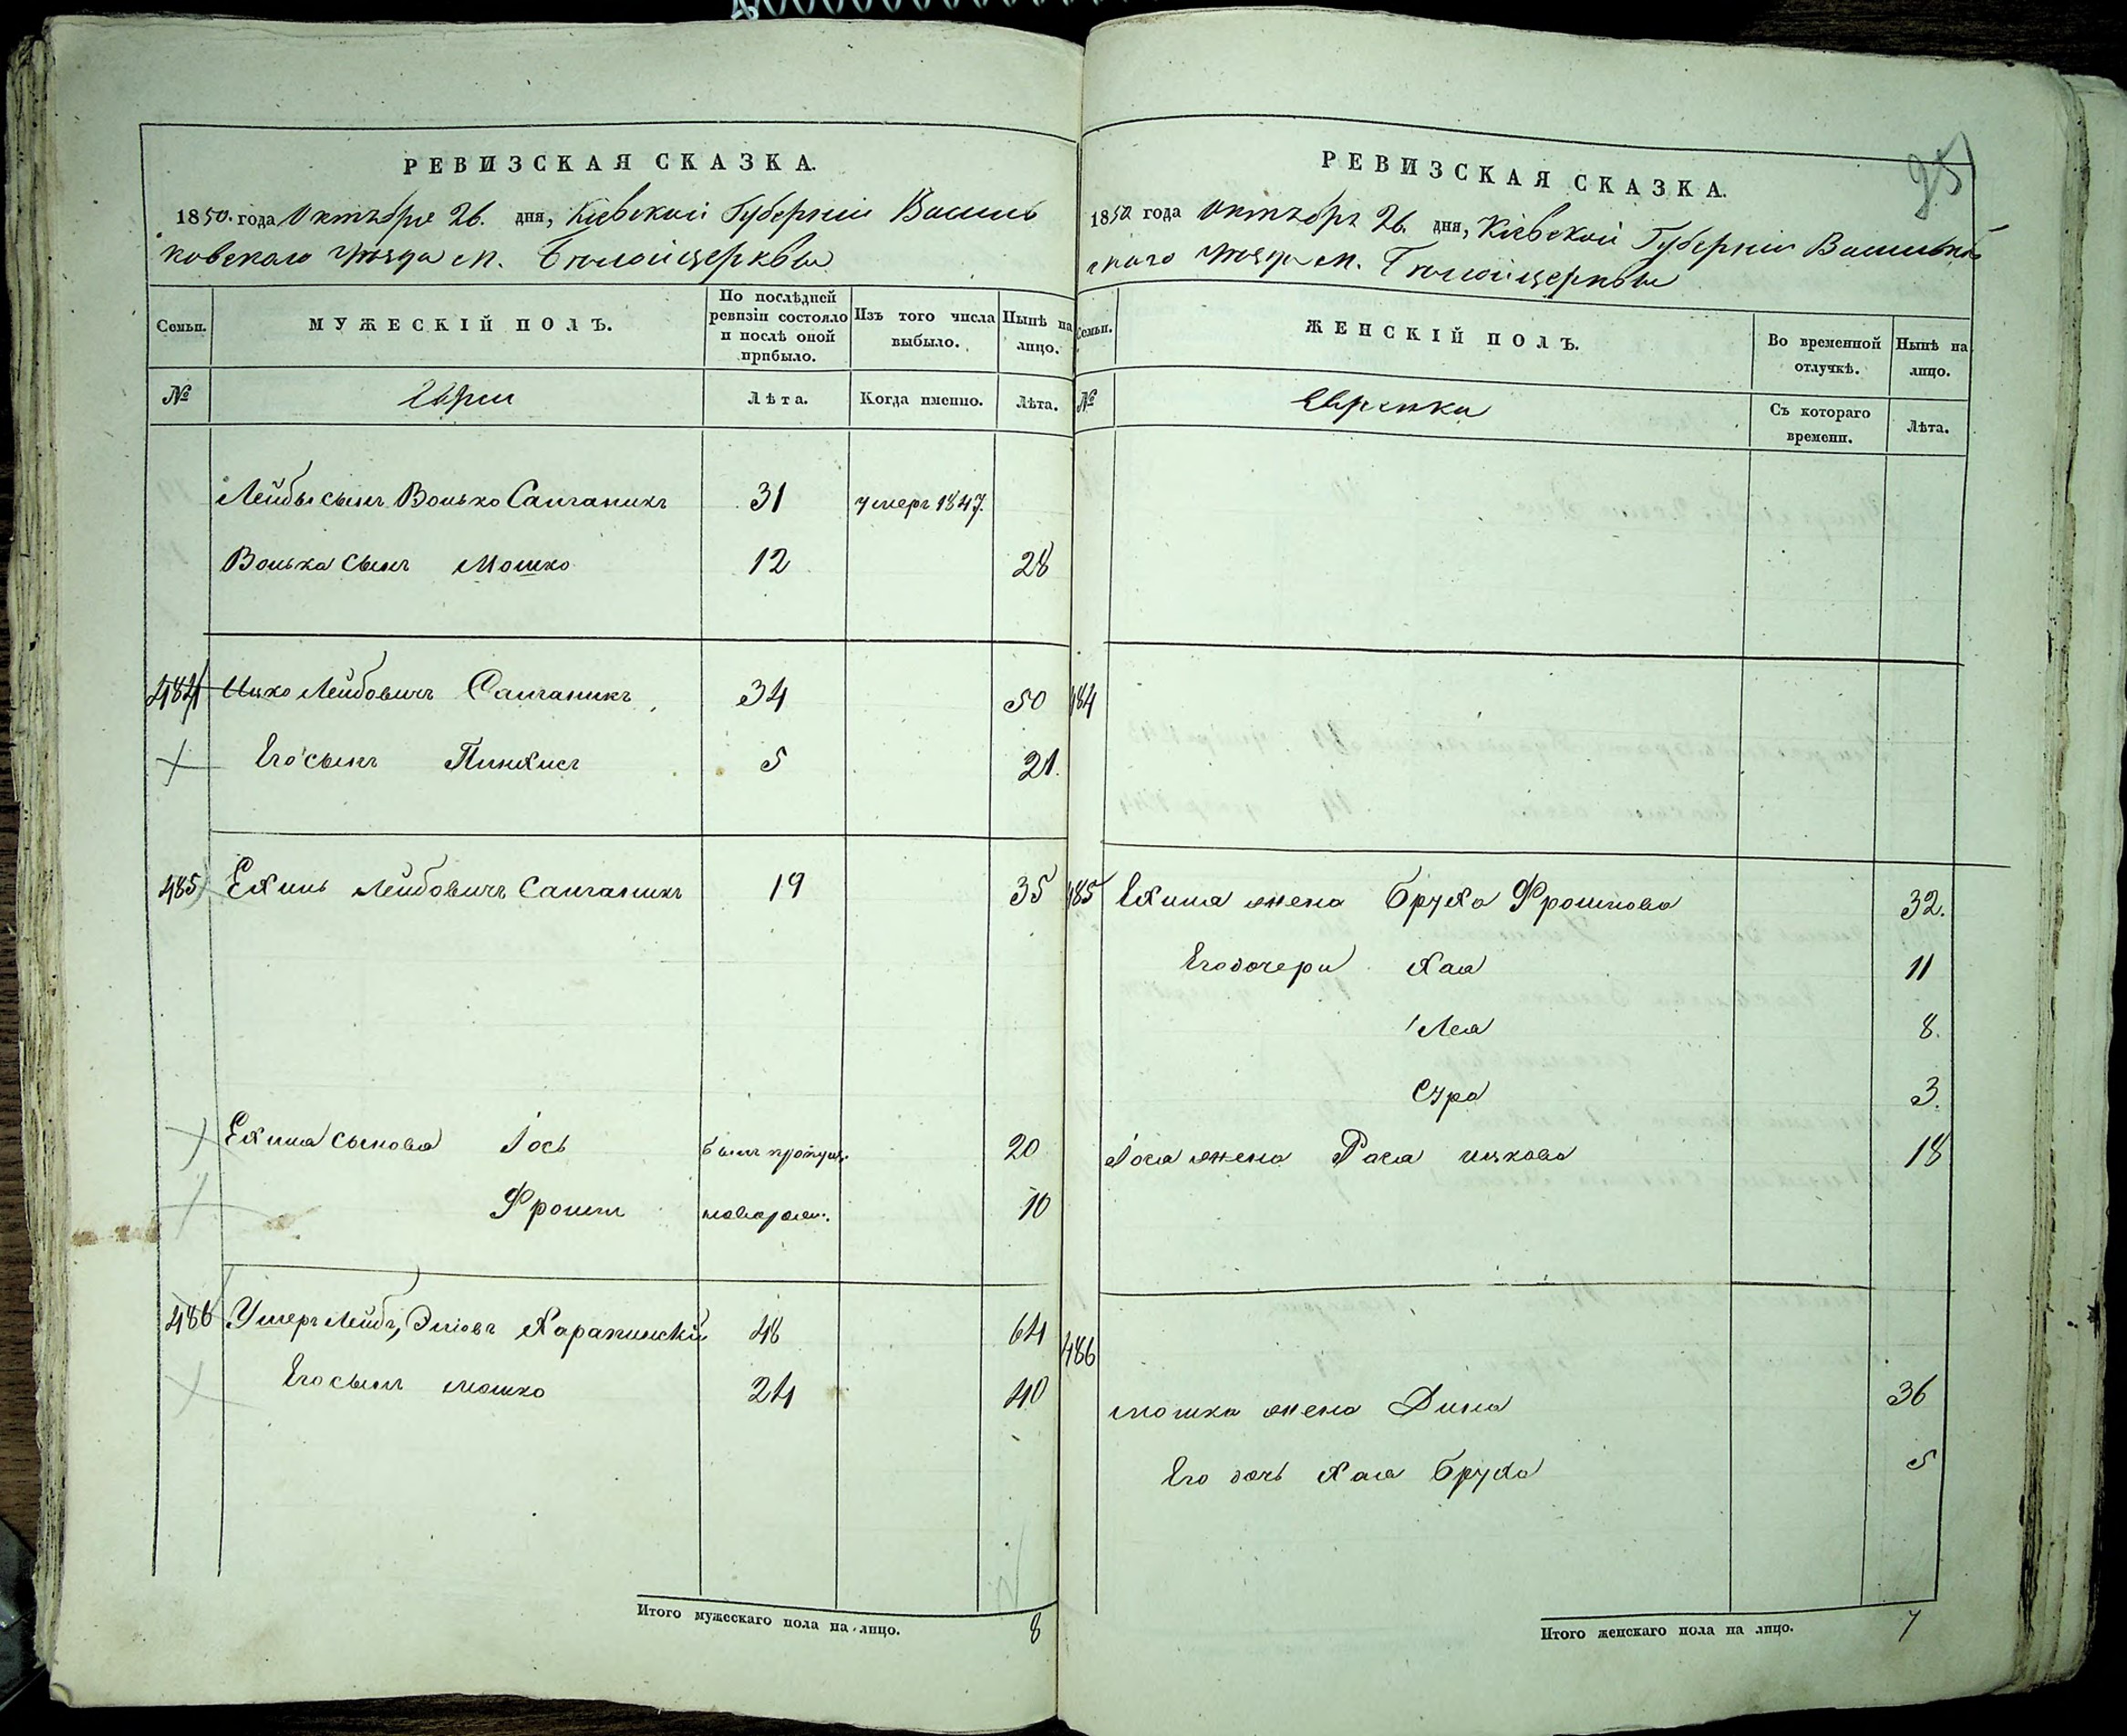 РЕВИЗСКАЯ СКАЗКА.
1850. года Октября 26. дня, Кіевской Губерніи Василь
ковскаго уѣзда м. Бѣлойцеркви
Семьи. МУЖЕСКІЙ ПОЛЪ. По послѣдней ревизіи состояло и послѣ оной прибыло. Изъ того числа выбыло. Нынѣ на лицо.
№ Евреи Лѣта. Когда именно. Лѣта.
Лейбы сынъ Волько Саиганикъ 31 умеръ 1847.
Волька сынъ Мошко 12 28
484 Ицко Лейбовичъ Саиганикъ 34 50
Его сынъ Пинхасъ 5 21.
485 Ехиль Лейбовичъ Саиганикъ 19 35
Ехиля сыновья Іось былъ пропущ. 20
Фроимъ новорожд. 10
486 Ушеръ Лейбъ, Эліовъ Харапинскій 48 64
Его сынъ мошко 24 40
Итого мужескаго пола на лицо. 8
25
РЕВИЗСКАЯ СКАЗКА.
1850 года Октября 26. дня, Кіевской Губерніи Васильков
скаго уѣзда м. Бѣлойцеркви
Семьи. ЖЕНСКІЙ ПОЛЪ. Во временной отлучкѣ. Нынѣ на лицо.
№ Еврейки Съ котораго времени. Лѣта.
484
485 Ехиля жена Бруха Фроимова 32.
Его дочери Хая 11
Лея 8.
Сура 3.
Іося жена Рася ицкова 18
486
мошка жена Дина 36
Его дочь Хая Бруха 5
Итого женскаго пола на лицо. 7